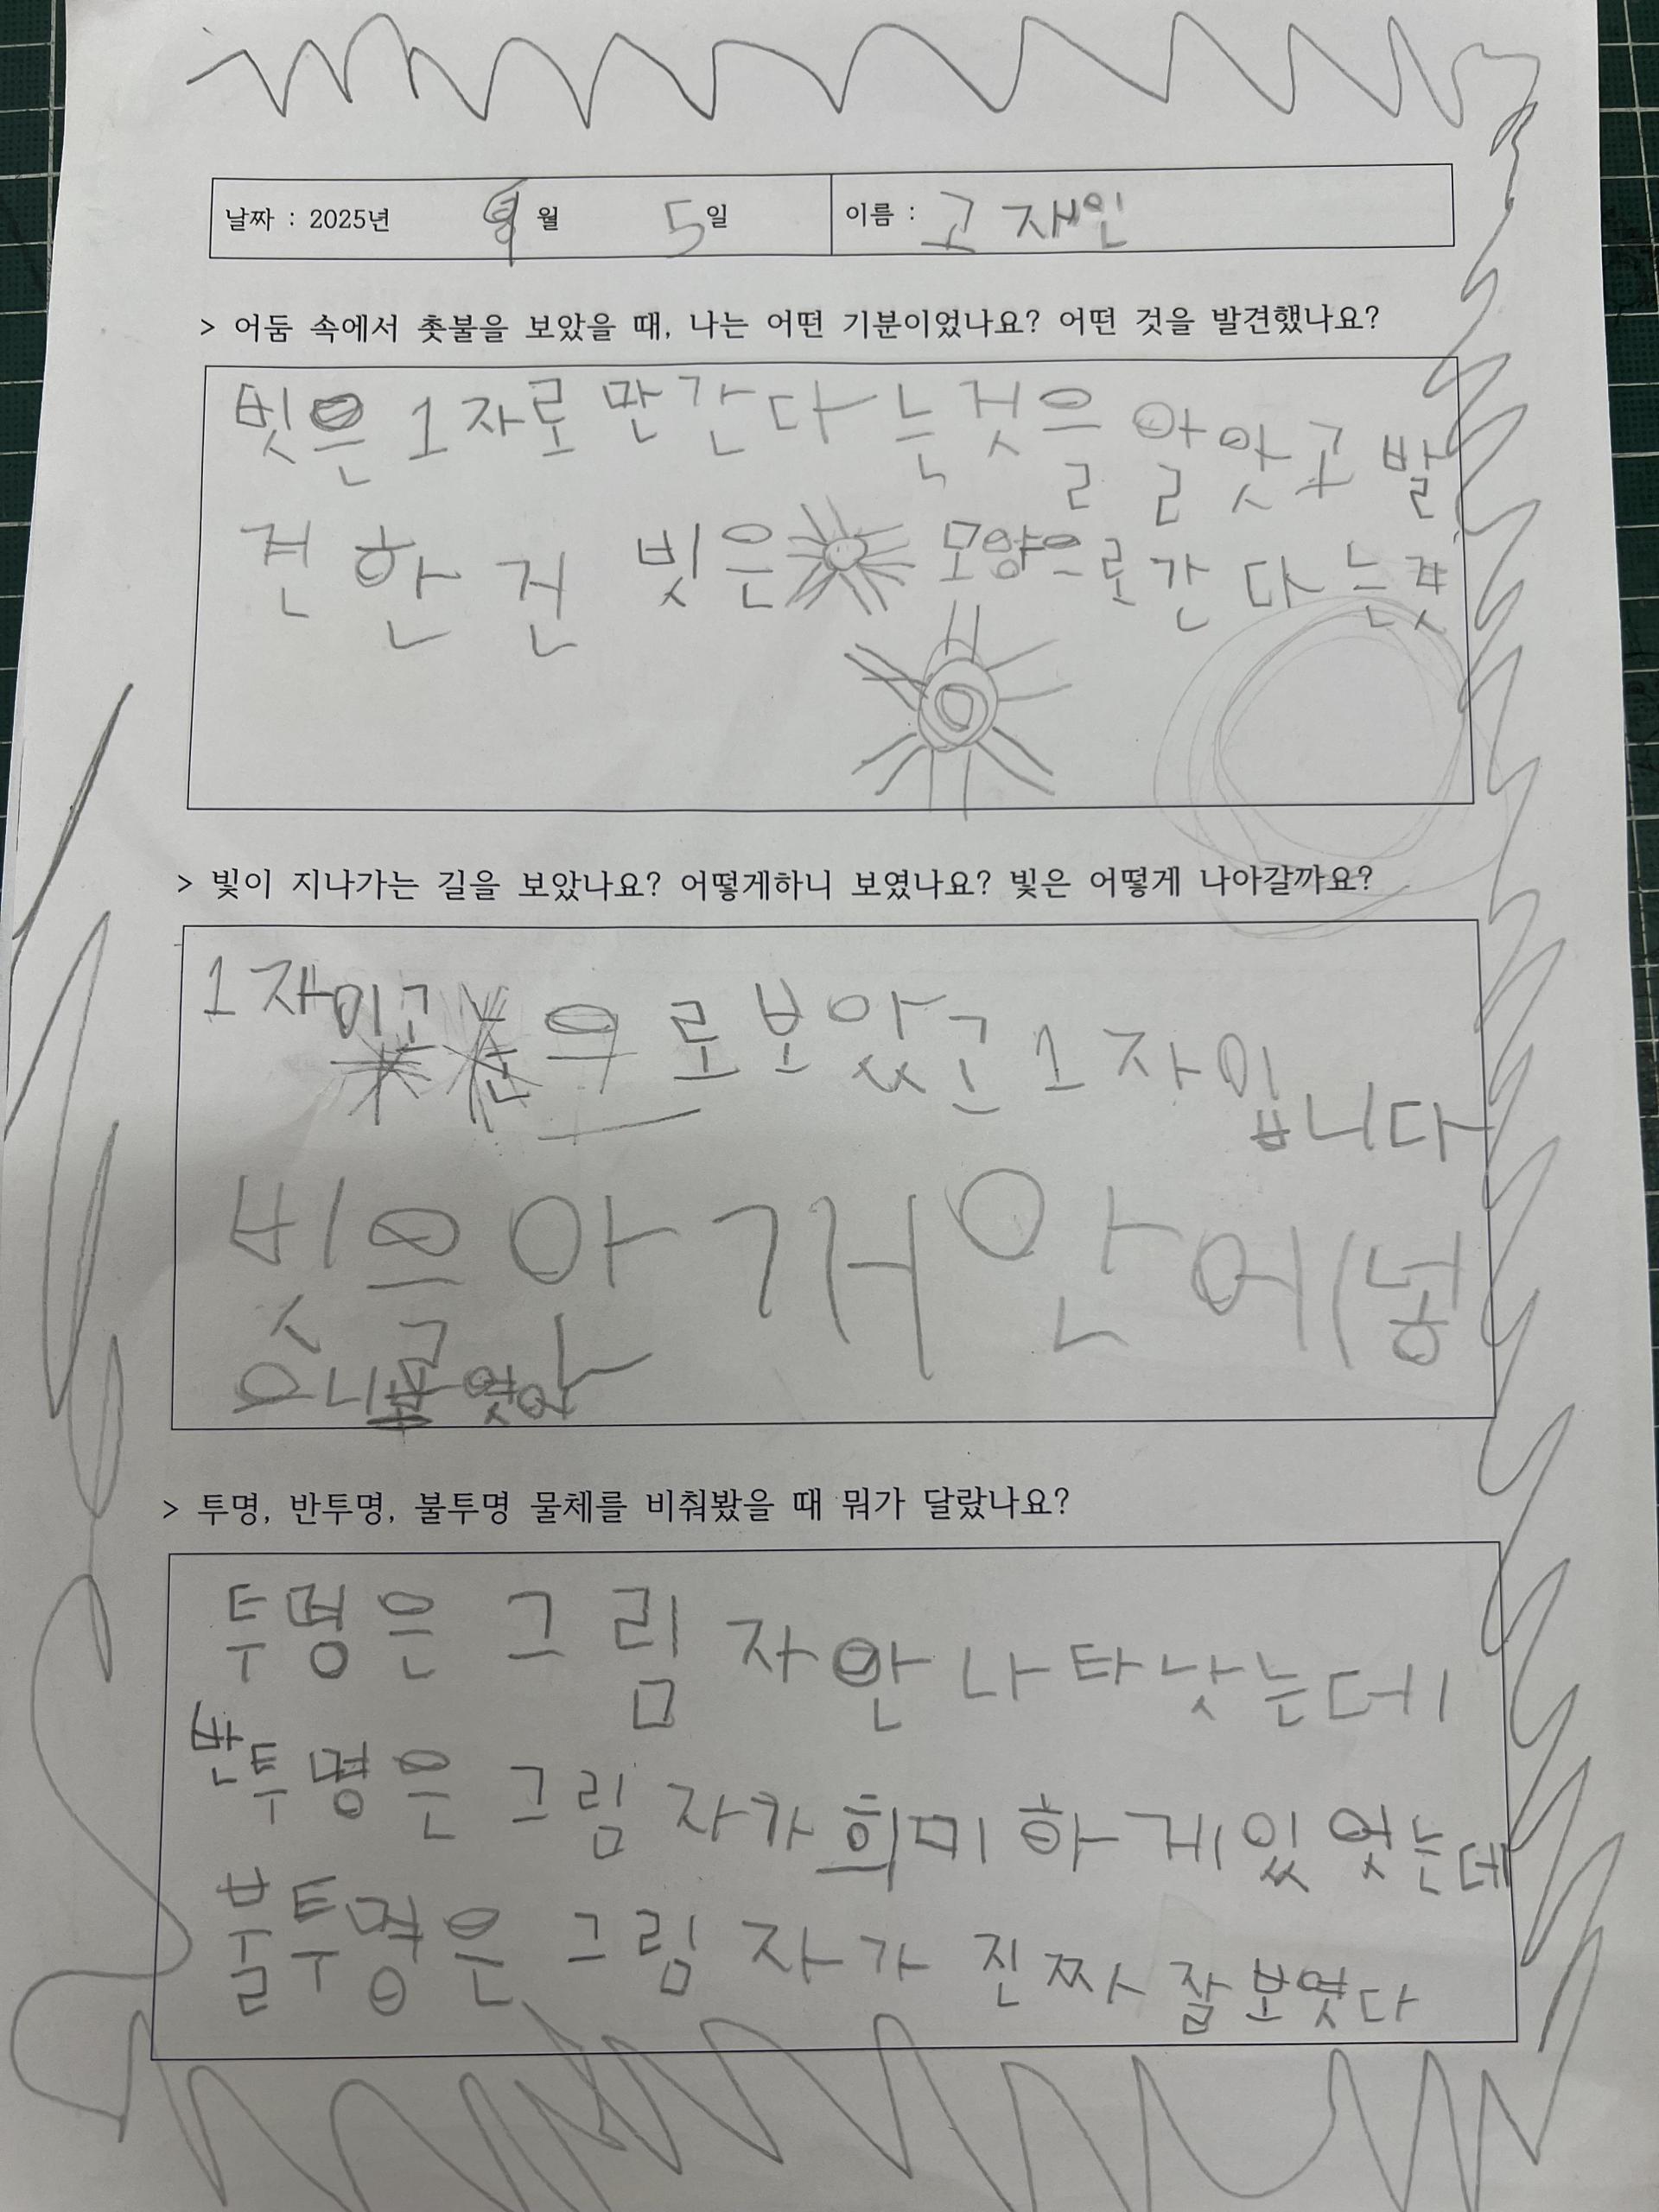 날짜 : 2025년 9월 5일 이름 : 고재인
> 어둠 속에서 촛불을 보았을 때, 나는 어떤 기분이었나요? 어떤 것을 발견했나요?
빗은 1자로만 간다는것을 알앗고 발
견한건 빗은 모양으로 간다는것
> 빛이 지나가는 길을 보았나요? 어떻게하니 보였나요? 빛은 어떻게 나아갈까요?
1재이고 눈으로 보았고 1자입니다
빗을 안에 넣
으니 보엿
> 투명, 반투명, 불투명 물체를 비춰봤을 때 뭐가 달랐나요?
투명은 그림자 안 나타낫는데
반투명은 그림자가 희미하게 있엇는데
불투명은 그림자가 진짜 잘 보엿다